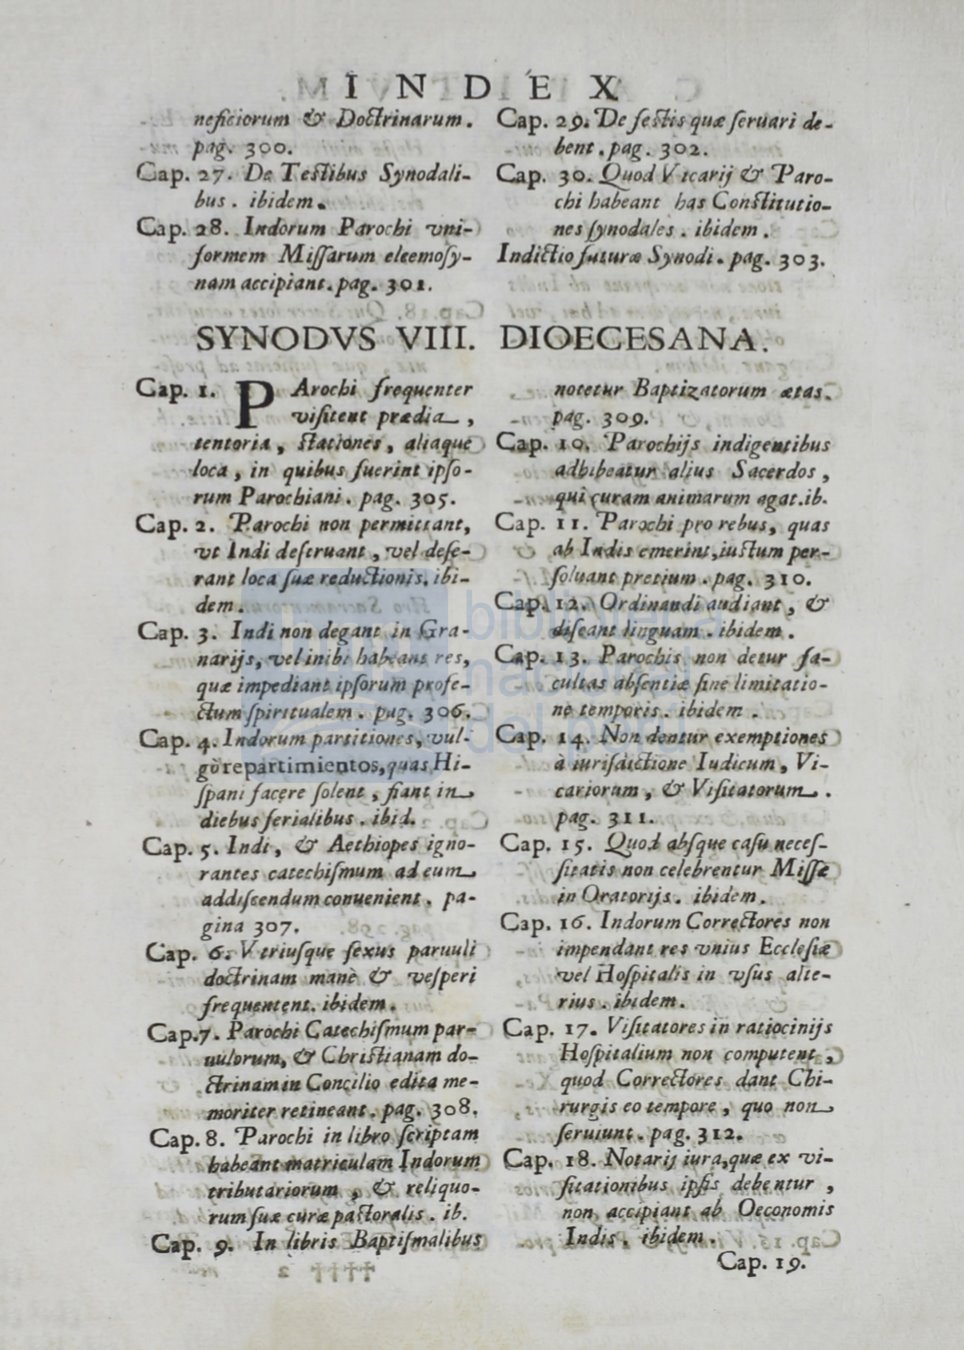 INDEX
neficiorum & Doctrinarum.
pag. 300.
Cap. 27. De Testibus Synodali-
bus. ibidem.
Cap. 28. Indorum Parochi vni-
formem Missarum eleemosy-
nam accipiant. pag. 301.
Cap. 29. De festis quæ seruari de-
bent. pag. 302.
Cap. 30. Quod Vicarij & Paro-
chi habeant has Constitutio-
nes synodales. ibidem.
Indictio futuræ Synodi. pag. 303.
SYNODVS VIII. DIOECESANA.
Cap. 1. PArochi frequenter
visitent prædia,
tentoria, stationes, aliaque
loca, in quibus fuerint ipso-
rum Parochiani. pag. 305.
Cap. 2. Parochi non permittant,
vt Indi destruant, vel dese-
rant loca suæ reductionis. ibi-
dem.
Cap. 3. Indi non degant in Gra-
narijs, vel inibi habeant res,
quæ impediant ipsorum profe-
ctum spiritualem. pag. 306.
Cap. 4. Indorum partitiones, vul-
gò repartimientos, quas Hi-
spani facere solent, fiant in
diebus ferialibus. ibid.
Cap. 5. Indi, & Aethiopes igno-
rantes catechismum ad eum
addiscendum conuenient. pa-
gina 307.
Cap. 6. Vtriusque sexus paruuli
doctrinam manè & vesperi
frequentent. ibidem.
Cap. 7. Parochi Catechismum par-
uulorum, & Christianam do-
ctrinam in Concilio edita me-
moriter retineant. pag. 308.
Cap. 8. Parochi in libro scriptam
habeant matriculam Indorum
tributariorum, & reliquo-
rum suæ curæ pastoralis. ib.
Cap. 9. In libris Baptismalibus
notetur Baptizatorum ætas.
pag. 309.
Cap. 10. Parochijs indigentibus
adhibeatur alius Sacerdos,
qui curam animarum agat. ib.
Cap. 11. Parochi pro rebus, quas
ab Indis emerint, iustum per-
soluant pretium. pag. 310.
Cap. 12. Ordinandi audiant, &
discant linguam. ibidem.
Cap. 13. Parochis non detur fa-
cultas absentiæ sine limitatio-
ne temporis. ibidem.
Cap. 14. Non dentur exemptiones
à iurisdictione Iudicum, Vi-
cariorum, & Visitatorum.
pag. 311.
Cap. 15. Quod absque casu neces-
sitatis non celebrentur Missæ
in Oratorijs. ibidem.
Cap. 16. Indorum Correctores non
impendant res vnius Ecclesiæ
vel Hospitalis in vsus alte-
rius. ibidem.
Cap. 17. Visitatores in ratiocinijs
Hospitalium non computent,
quod Correctores dant Chi-
rurgis eo tempore, quo non
seruiunt. pag. 312.
Cap. 18. Notarij iura, quæ ex vi-
sitationibus ipsis debentur,
non accipiant ab Oeconomis
Indis. ibidem.
Cap. 19.